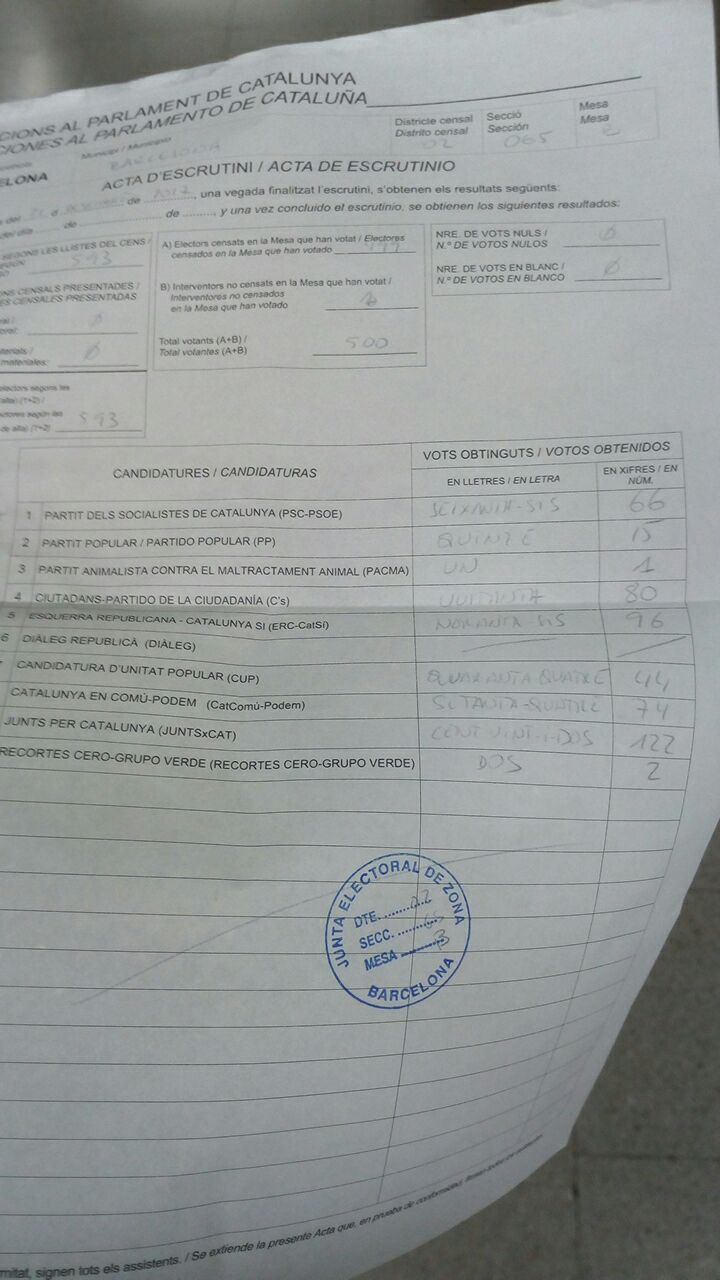 CIONS AL PARLAMENT DE CATALUNYA
CIONES AL PARLAMENTO DE CATALUÑA
Municipi / Municipio
Districte censal
Distrito censal
02
Secció
Sección
065
Mesa
Mesa
B
ELONA
BARCELONA
ACTA D'ESCRUTINI / ACTA DE ESCRUTINIO
de 2017, una vegada finalitzat l'escrutini, s'obtenen els resultats següents:
del día de de ........, y una vez concluido el escrutinio, se obtienen los siguientes resultados:
SEGONS LES LLISTES DEL CENS /
593
NS CENSALS PRESENTADES /
ES CENSALES PRESENTADAS
ral /
oral: Ø
terials /
materiales: Ø
electors segons les
altal (1+2) /
ectores según las
de alta) (1+2) 593
A) Electors censats en la Mesa que han votat / Electores
censados en la Mesa que han votado
B) Interventors no censats en la Mesa que han votat /
Interventores no censados
en la Mesa que han votado
Total votants (A+B) /
Total votantes (A+B) 500
NRE. DE VOTS NULS /
N.º DE VOTOS NULOS Ø
NRE. DE VOTS EN BLANC /
N.º DE VOTOS EN BLANCO Ø
CANDIDATURES / CANDIDATURAS
VOTS OBTINGUTS / VOTOS OBTENIDOS
EN LLETRES / EN LETRA
EN XIFRES / EN NÚM.
1 PARTIT DELS SOCIALISTES DE CATALUNYA (PSC-PSOE) SEIXANTA-SIS 66
2 PARTIT POPULAR / PARTIDO POPULAR (PP) QUINZE 15
3 PARTIT ANIMALISTA CONTRA EL MALTRACTAMENT ANIMAL (PACMA) UN 1
4 CIUTADANS-PARTIDO DE LA CIUDADANÍA (C's) VUITANTA 80
5 ESQUERRA REPUBLICANA - CATALUNYA SI (ERC-CatSí) NORANTA-SIS 96
6 DIÀLEG REPUBLICÀ (DIÀLEG)
CANDIDATURA D'UNITAT POPULAR (CUP) QUARANTA QUATRE 44
CATALUNYA EN COMÚ-PODEM (CatComú-Podem) SETANTA-QUATRE 74
JUNTS PER CATALUNYA (JUNTSxCAT) CENT VINT-I-DOS 122
RECORTES CERO-GRUPO VERDE (RECORTES CERO-GRUPO VERDE) DOS 2
JUNTA ELECTORAL DE ZONA
DTE. 02
SECC. 65
MESA B
BARCELONA
mitat, signen tots els assistents. / Se extiende la presente Acta que, en prueba de conformidad, firman todos los asistentes.